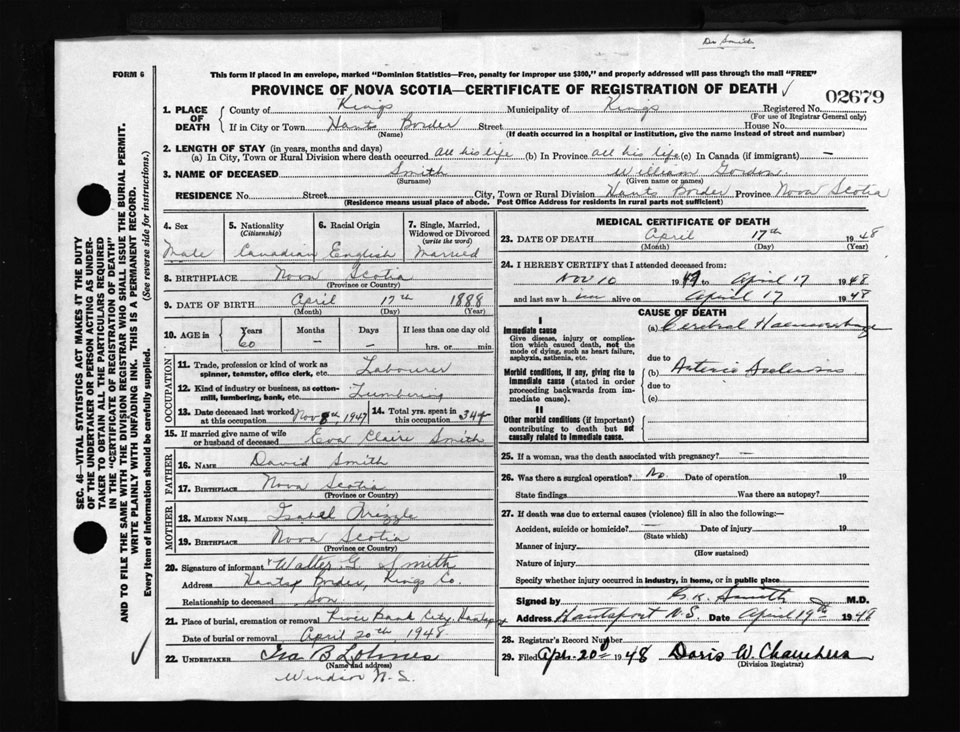 Dr Smith
FORM 6
This form if placed in an envelope, marked "Dominion Statistics—Free, penalty for improper use $300," and properly addressed will pass through the mail "FREE"
PROVINCE OF NOVA SCOTIA—CERTIFICATE OF REGISTRATION OF DEATH
02679
1. PLACE OF DEATH
County of Kings Municipality of Kings Registered No.
(For use of Registrar General only)
If in City or Town Hants Border Street House No.
(Name) (If death occurred in a hospital or institution, give the name instead of street and number)
2. LENGTH OF STAY (in years, months and days)
(a) In City, Town or Rural Division where death occurred all his life (b) In Province all his life (c) In Canada (if immigrant) —
3. NAME OF DECEASED Smith William Gordon
(Surname) (Given name or names)
RESIDENCE No. Street City, Town or Rural Division Hants Border Province Nova Scotia
(Residence means usual place of abode. Post Office Address for residents in rural parts not sufficient)
4. Sex 5. Nationality (Citizenship) 6. Racial Origin 7. Single, Married, Widowed or Divorced (write the word)
Male Canadian English Married
8. BIRTHPLACE Nova Scotia
(Province or Country)
9. DATE OF BIRTH April 17th 1888
(Month) (Day) (Year)
10. AGE in Years Months Days If less than one day old
60 — — hrs. or min.
OCCUPATION
11. Trade, profession or kind of work as spinner, teamster, office clerk, etc. Labourer
12. Kind of industry or business, as cotton-mill, lumbering, bank, etc. Lumbering
13. Date deceased last worked at this occupation Nov 8th, 1947 14. Total yrs. spent in this occupation 34 y
15. If married give name of wife or husband of deceased Eva Claire Smith
FATHER
16. NAME David Smith
17. BIRTHPLACE Nova Scotia
(Province or Country)
MOTHER
18. MAIDEN NAME Isabel
19. BIRTHPLACE Nova Scotia
(Province or Country)
20. Signature of informant Walter G. Smith
Address Hants Border, Kings Co.
Relationship to deceased Son
21. Place of burial, cremation or removal River Bank Hantsport
Date of burial or removal April 20th, 1948
22. UNDERTAKER Ira B
(Name and address)
Windsor N.S.
MEDICAL CERTIFICATE OF DEATH
23. DATE OF DEATH April 17th 1948
(Month) (Day) (Year)
24. I HEREBY CERTIFY that I attended deceased from:
Nov 10 1947 to April 17 1948
and last saw him alive on April 17 1948
CAUSE OF DEATH
I
Immediate cause (a) Cerebral Haemorrhage
Give disease, injury or complication which caused death, not the mode of dying, such as heart failure, asphyxia, asthenia, etc.
due to
Morbid conditions, if any, giving rise to immediate cause (stated in order proceeding backwards from immediate cause)
(b) Arterio Sclerosis
due to
(c)
II
Other morbid conditions (if important) contributing to death but not causally related to immediate cause.
25. If a woman, was the death associated with pregnancy? —
26. Was there a surgical operation? No. Date of operation 19
State findings Was there an autopsy?
27. If death was due to external causes (violence) fill in also the following:—
Accident, suicide or homicide? — Date of injury 19
(State which)
Manner of injury
(How sustained)
Nature of injury
Specify whether injury occurred in industry, in home, or in public place
Signed by Smith M.D.
Address Hantsport N.S. Date April 19th 1948
28. Registrar's Record Number
29. Filed Apr. 20 1948 Doris W. Chambers
(Division Registrar)
SEC. 46—VITAL STATISTICS ACT MAKES IT THE DUTY
OF THE UNDERTAKER OR PERSON ACTING AS UNDER-
TAKER TO OBTAIN ALL THE PARTICULARS REQUIRED
IN THE "CERTIFICATE OF REGISTRATION OF DEATH"
AND TO FILE THE SAME WITH THE DIVISION REGISTRAR WHO SHALL ISSUE THE BURIAL PERMIT.
WRITE PLAINLY WITH UNFADING INK. THIS IS A PERMANENT RECORD.
Every item of Information should be carefully supplied. (See reverse side for instructions.)